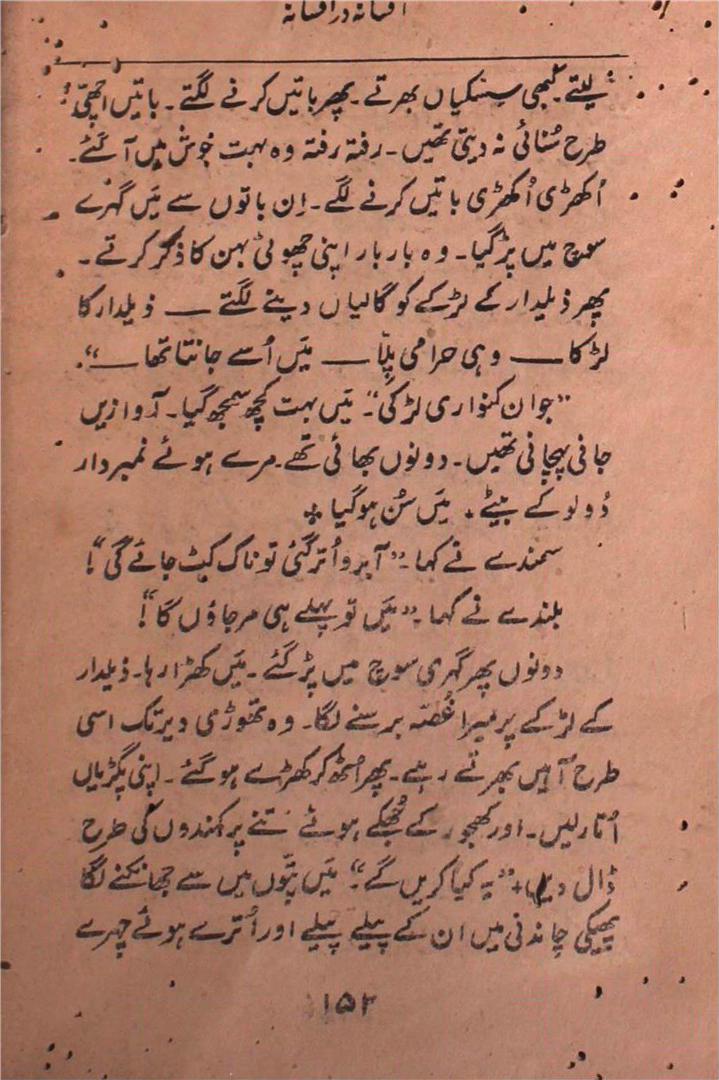 افسانہ در افسانہ
لیتے۔ کبھی سسکیاں بھرتے۔ پھر باتیں کرنے لگتے۔ باتیں اچھی
طرح سُنائی نہ دیتی تھیں۔ رفتہ رفتہ وہ بہت جوش میں آ گئے۔
اُکھڑی اُکھڑی باتیں کرنے لگے۔ اِن باتوں سے مَیں گہرے
سوچ میں پڑ گیا۔ وہ بار بار اپنی چھوٹی بہن کا ذکر کرتے۔
پھر ذیلدار کے لڑکے کو گالیاں دینے لگتے — ذیلدار کا
لڑکا — وہی حرامی پِلّا — مَیں اُسے جانتا تھا —“۔
”جوان کنواری لڑکی“۔ مَیں بہت کچھ سمجھ گیا۔ آوازیں
جانی پہچانی تھیں۔ دونوں بھائی تھے۔ مرے ہوئے نمبردار
دُولو کے بیٹے۔ مَیں سُن ہو گیا ٭
سمندے نے کہا۔ ”آبرو اُتر گئی تو ناک کٹ جائے گی“!
بلندے نے کہا۔ ”مَیں تو پہلے ہی مر جاؤں گا“!
دونوں پھر گہری سوچ میں پڑ گئے۔ مَیں کھڑا رہا۔ ذیلدار
کے لڑکے پر میرا غُصّہ برسنے لگا۔ وہ تھوڑی دیر تک اسی
طرح آہیں بھرتے رہے۔ پھر اُٹھ کر کھڑے ہو گئے۔ اپنی پگڑیاں
اُتار لیں۔ اور کھجور کے جُھکے ہوئے تنے پر کمندوں کی طرح
ڈال دیں ٭ ”یہ کیا کریں گے“؟ مَیں پتّوں میں سے جھانکنے لگا
پھیکی چاندنی میں ان کے پیلے پیلے اور اُترے ہوئے چہرے
۱۵۳